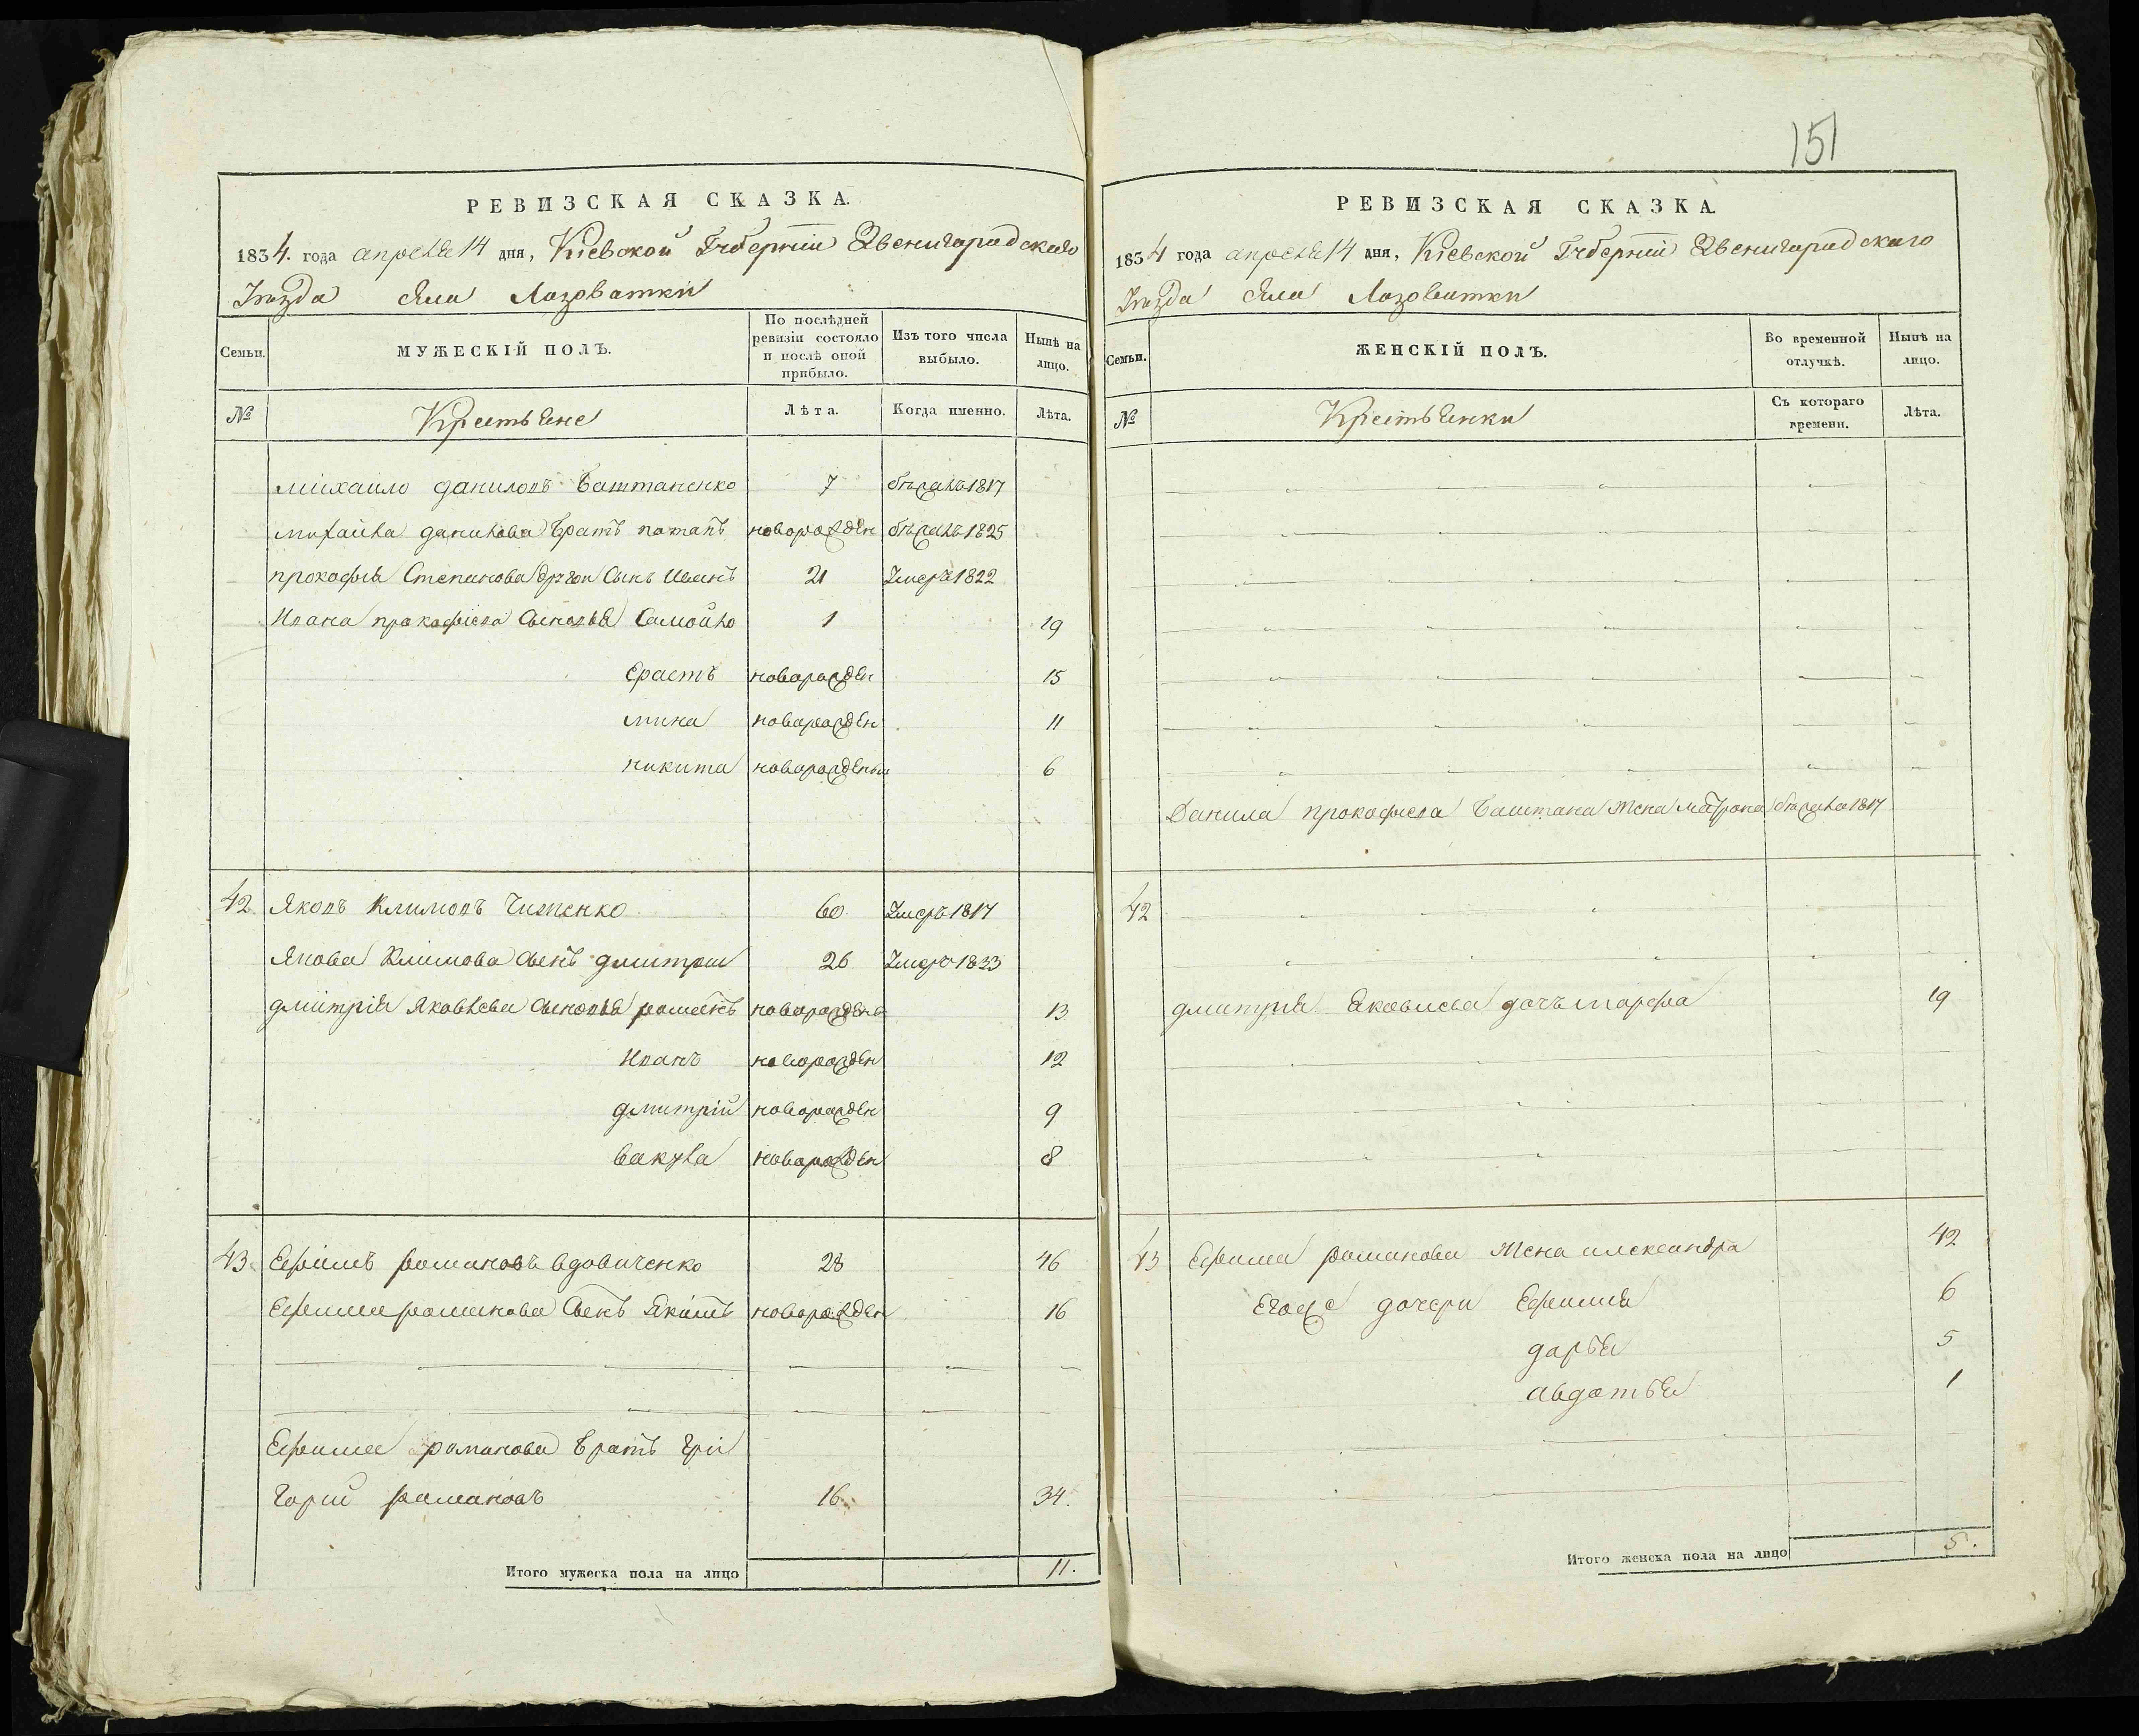 151
РЕВИЗСКАЯ СКАЗКА.
1834. года апреля 14 дня, Кіевской Губерніи Звенигородскаго
Уѣзда села Лозоватки
Семьи. МУЖЕСКІЙ ПОЛЪ. По послѣдней ревизіи состояло и послѣ оной прибыло. Изъ того числа выбыло. Нынѣ на лицо.
№ Крестьяне Лѣта. Когда именно. Лѣта.
михаило даниловъ баштаненко 7 бѣжалъ 1817
михайла данилова братъ потапъ новорожден бѣжалъ 1825
прокофія Степанова другои Сынъ Иванъ 21 Умеръ 1822
Ивана прокофіева Сыновья Самойло 1 19
Ерастъ новорожден 15
мина новорожден 11
никита новорожденъ 6
42 Яковъ Климовъ Чиженко 60 Умеръ 1817
Якова Климова Сынъ дмитрии 26 Умеръ 1833
дмитрія Яковлева Сыновья романъ новорожденъ 13
Иванъ новорожден 12
дмитрій новорожден 9
вакула новорожден 8
43 Ефимъ романовъ вдовиченко 28 46
Ефима романова Сынъ Якимъ новорожден 16
Ефима романова братъ гри
горий романовъ 16 34.
Итого мужеска пола на лицо 11.
РЕВИЗСКАЯ СКАЗКА
1834 года апреля 14 дня, Кіевской Губерніи Звенигородскаго
Уѣзда села Лозоватки
Семьи. ЖЕНСКІЙ ПОЛЪ. Во временной отлучкѣ. Нынѣ на лицо.
№ Крестьянки Съ котораго времени. Лѣта.
Данила прокофиева баштана жена матрона бѣжала 1817
42
дмитрія Яковлева дочь марфа 19
43 Ефима романова жена александра 42
Егоже дочери Ефимия 6
дарья 5
авдотья 1
Итого женска пола на лицо 5.